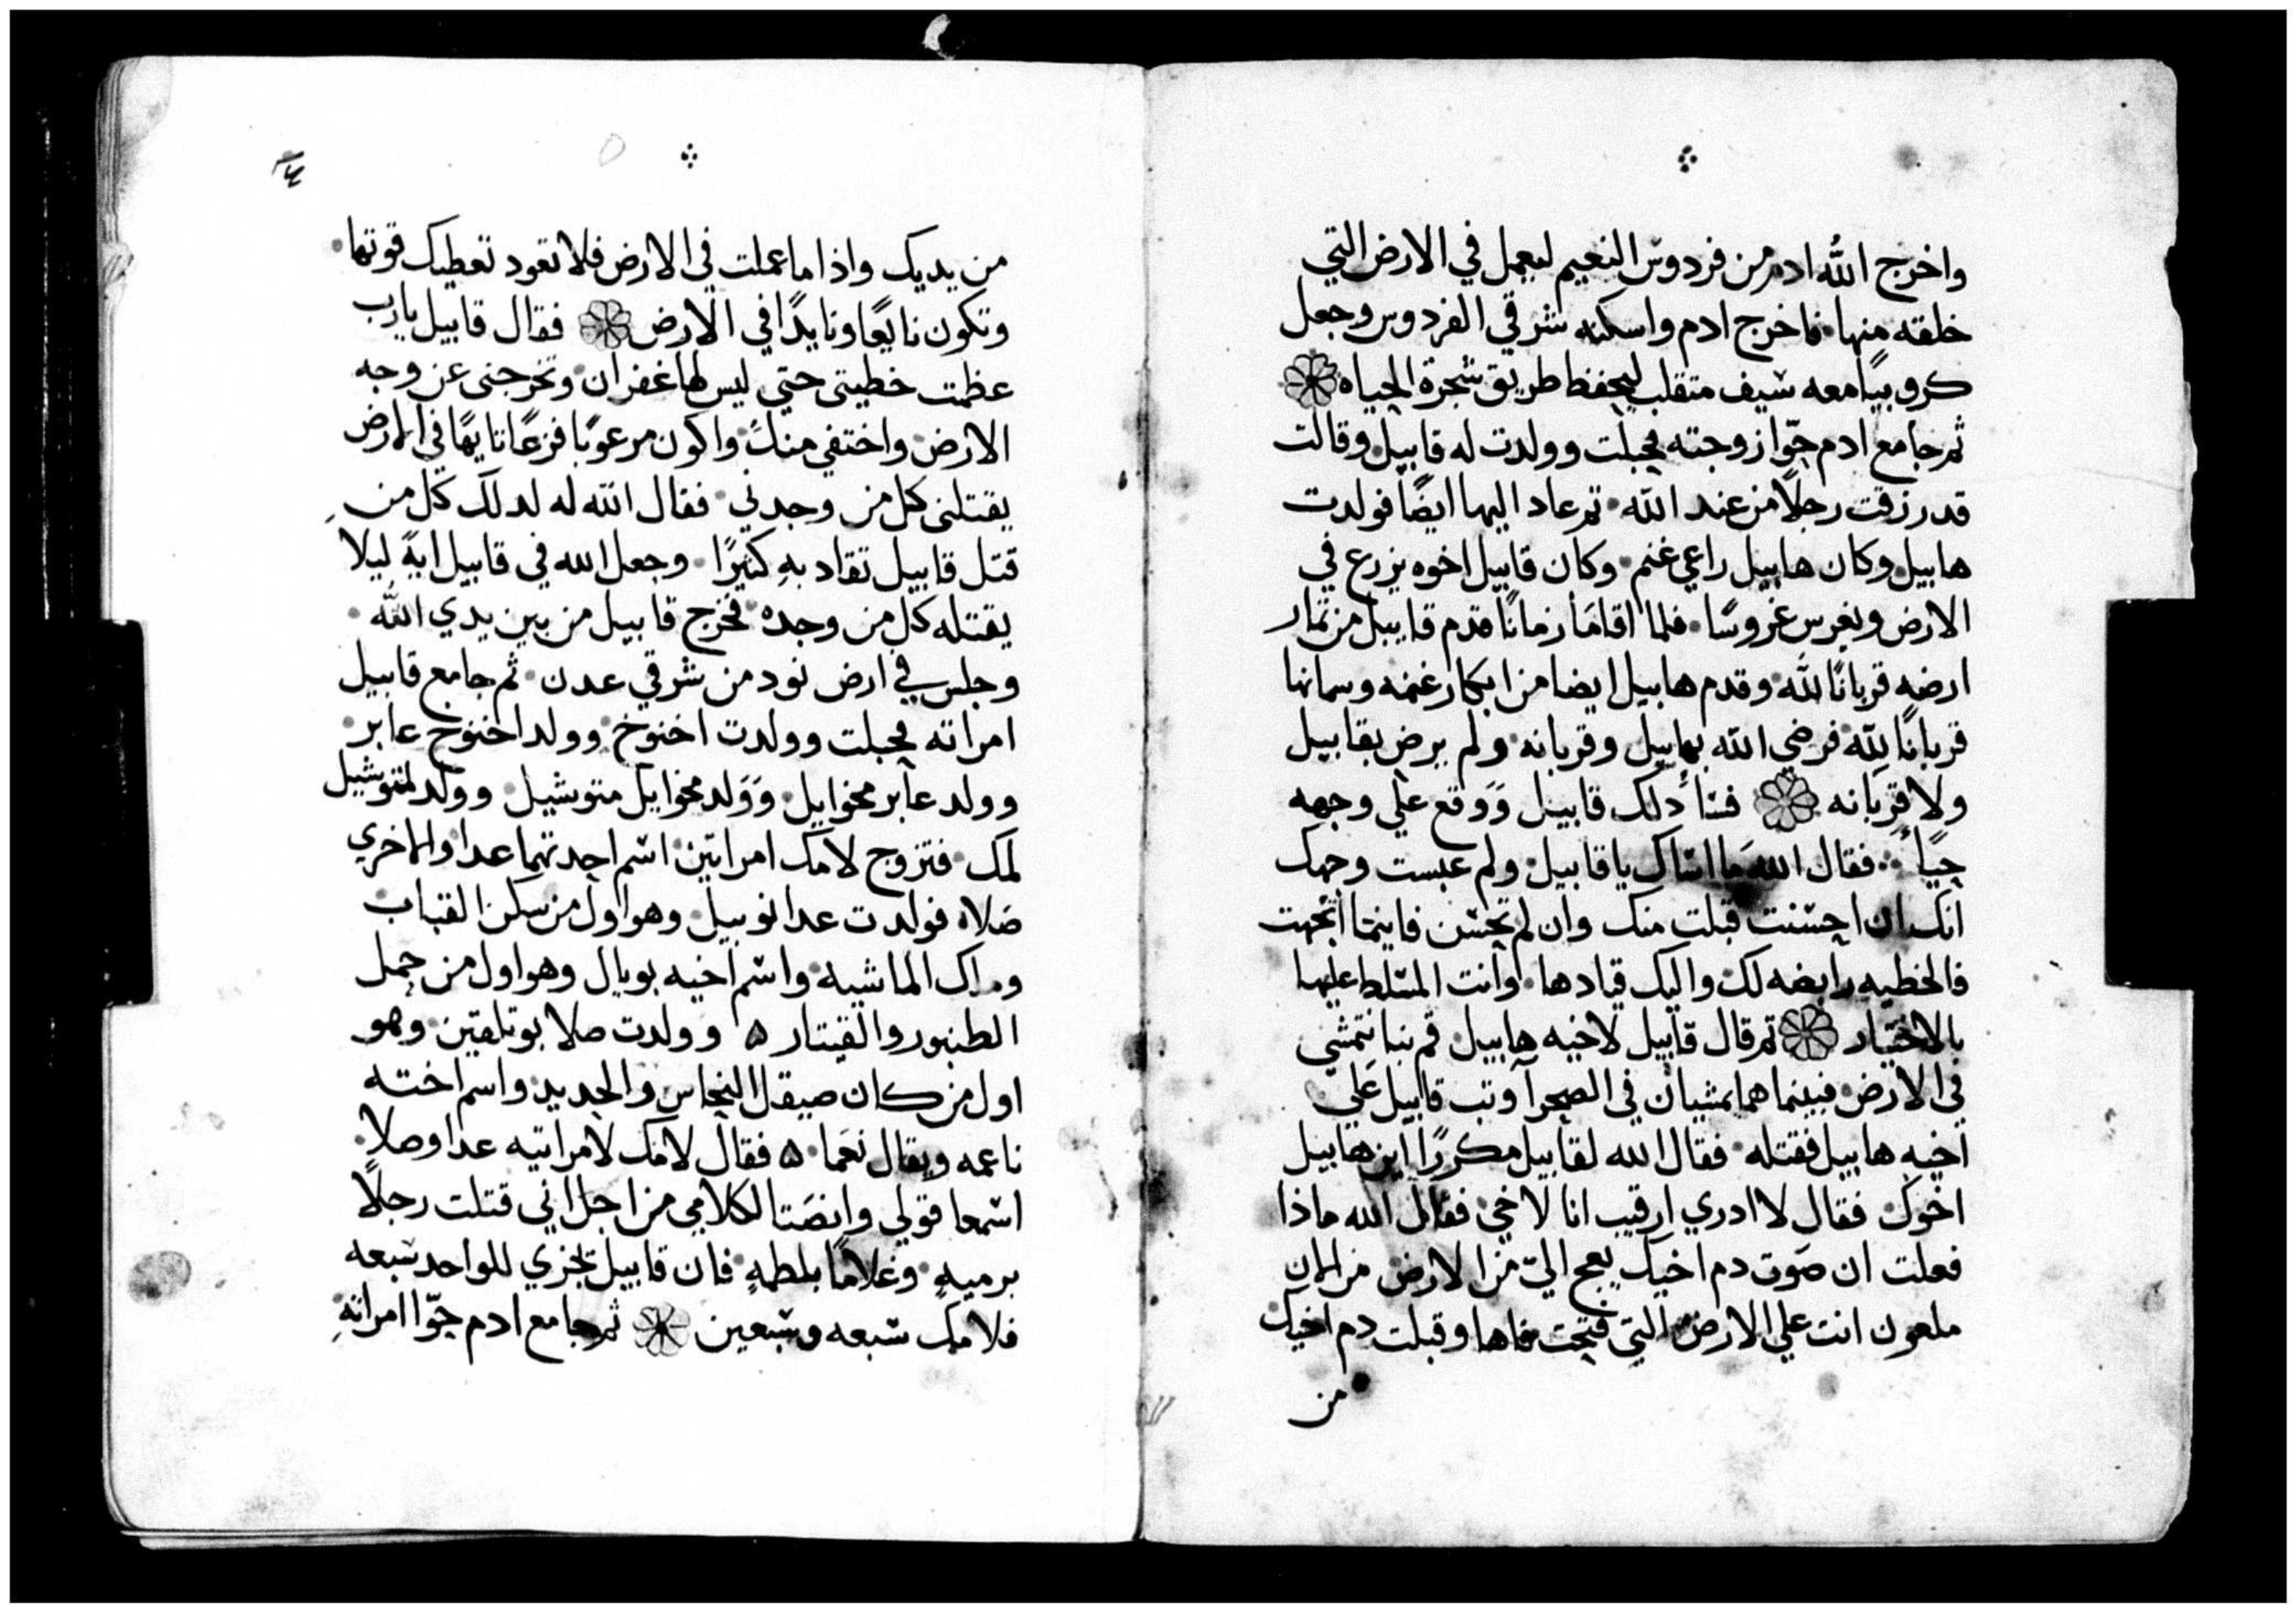 واخرج الله ادم من فردوس النعيم ليعمل في الارض التي
خلقه منها٠ فاخرج ادم واسكنه شرقي الفردوس وجعل
كروبيًا معه سيف متقلب ليحفظ طريق شجرة الحياه
ثم جامع ادم حوّا زوجته فحبلت وولدت له قابيل٠ وقالت
قد رزقت رجلًا من عند الله٠ ثم عاد اليها ايضًا فولدت
هابيل٠ وكان هابيل راعي غنم٠ وكان قابيل اخوه يزرع في
الارض ويغرس غروسًا٠ فلما اقامَا زمانًا قدم قابيل من ثمار
ارضه قربانًا لله٠ وقدم هابيل ايضا من ابكار غنمه وسمانها
قربانًا لله٠ فرضي الله بهابيل وقربانه٠ ولم يرض بقابيل
ولا قربانه فسآ ذلك قابيل وَوقع علي وجهه
حيًآ٠ فقال الله ما اساك يا قابيل٠ ولم عبست وجهك
انك ان احسنت قبلت منك وان لم تحسن فاينما اتجهت
فالخطيه رابضه لك واليك قيادها٠ وانت المسلط عليها
بالاختيار ثم قال قابيل لاخيه هابيل قم بنا نتمشي
في الارض٠ فبينما هما يمشيان في الصحرآ وثب قابيل عَلي
اخيه هابيل فقتله٠ فقال الله لقابيل مكررًا اين هابيل
اخوك٠ فقال لا ادري ارقيب انا لاخي٠ فقال الله ماذا
فعلت ان صَوت دم اخيك يعج اليّ من الارض٠ من الان
ملعون انت علي الارض التي فتحت فاها وقبلت دم اخيك
من
٤
من يديك واذا ما عملت في الارض فلا تعود تعطيك قوتها٠
وتكون نايعًا ونايدًا في الارض فقال قابيل يارب
عظمت خطيتى حتي ليس لها غفران٠ وتخرجنى عن وجه
الارض٠ واختفي منك٠ واكون مرعوبًا فزعًا تايهًا في الارض
يقتلنى كل من وجدني٠ فقال الله له لدلك كل من
قتل قابيل تقاد بهِ كثيرًا٠ وجعل الله في قابيل ايةً ليلا
يقتله كل من وجده٠ فخرج قابيل من بين يدي الله٠
وجلس في ارض نود من شرقي عدن٠ ثم جامع قابيل
امراته فحبلت وولدت اخنوخ٠ وولد اخنوخ عابر٠
وولد عابر محوايل٠ وَوَلد محوايل متوشيل٠ وولد لمتوشيل
لمك٠ فتزوج لامك امراتين٠ اسم احدتهما عدا والاخري
صَلا٠ فولدت عدا نوبيل٠ وهو اول من سكن القباب
والماشيه٠ واسم اخيه بوبال وهو اول من حمل
الطنبور والقيتار ۵ وولدت صلا بوتلقين٠ وهو
اول من كان صيقل النحاس والحديد٠ واسم اخته
ناعمه ويقال نعَما٠ ۵ فقال لامك لامراتيه عدا وصلا٠
اسمعا قولي وانصَتا لكلامي من اجل اني قتلت رجلًا
برميهٍ٠ وغلامًا بلطمهٍ٠ فان قابيل تجزي للواحد سبعه
فلامك سبعه وسبعين ثم جامع ادم حوّا امراتهِ